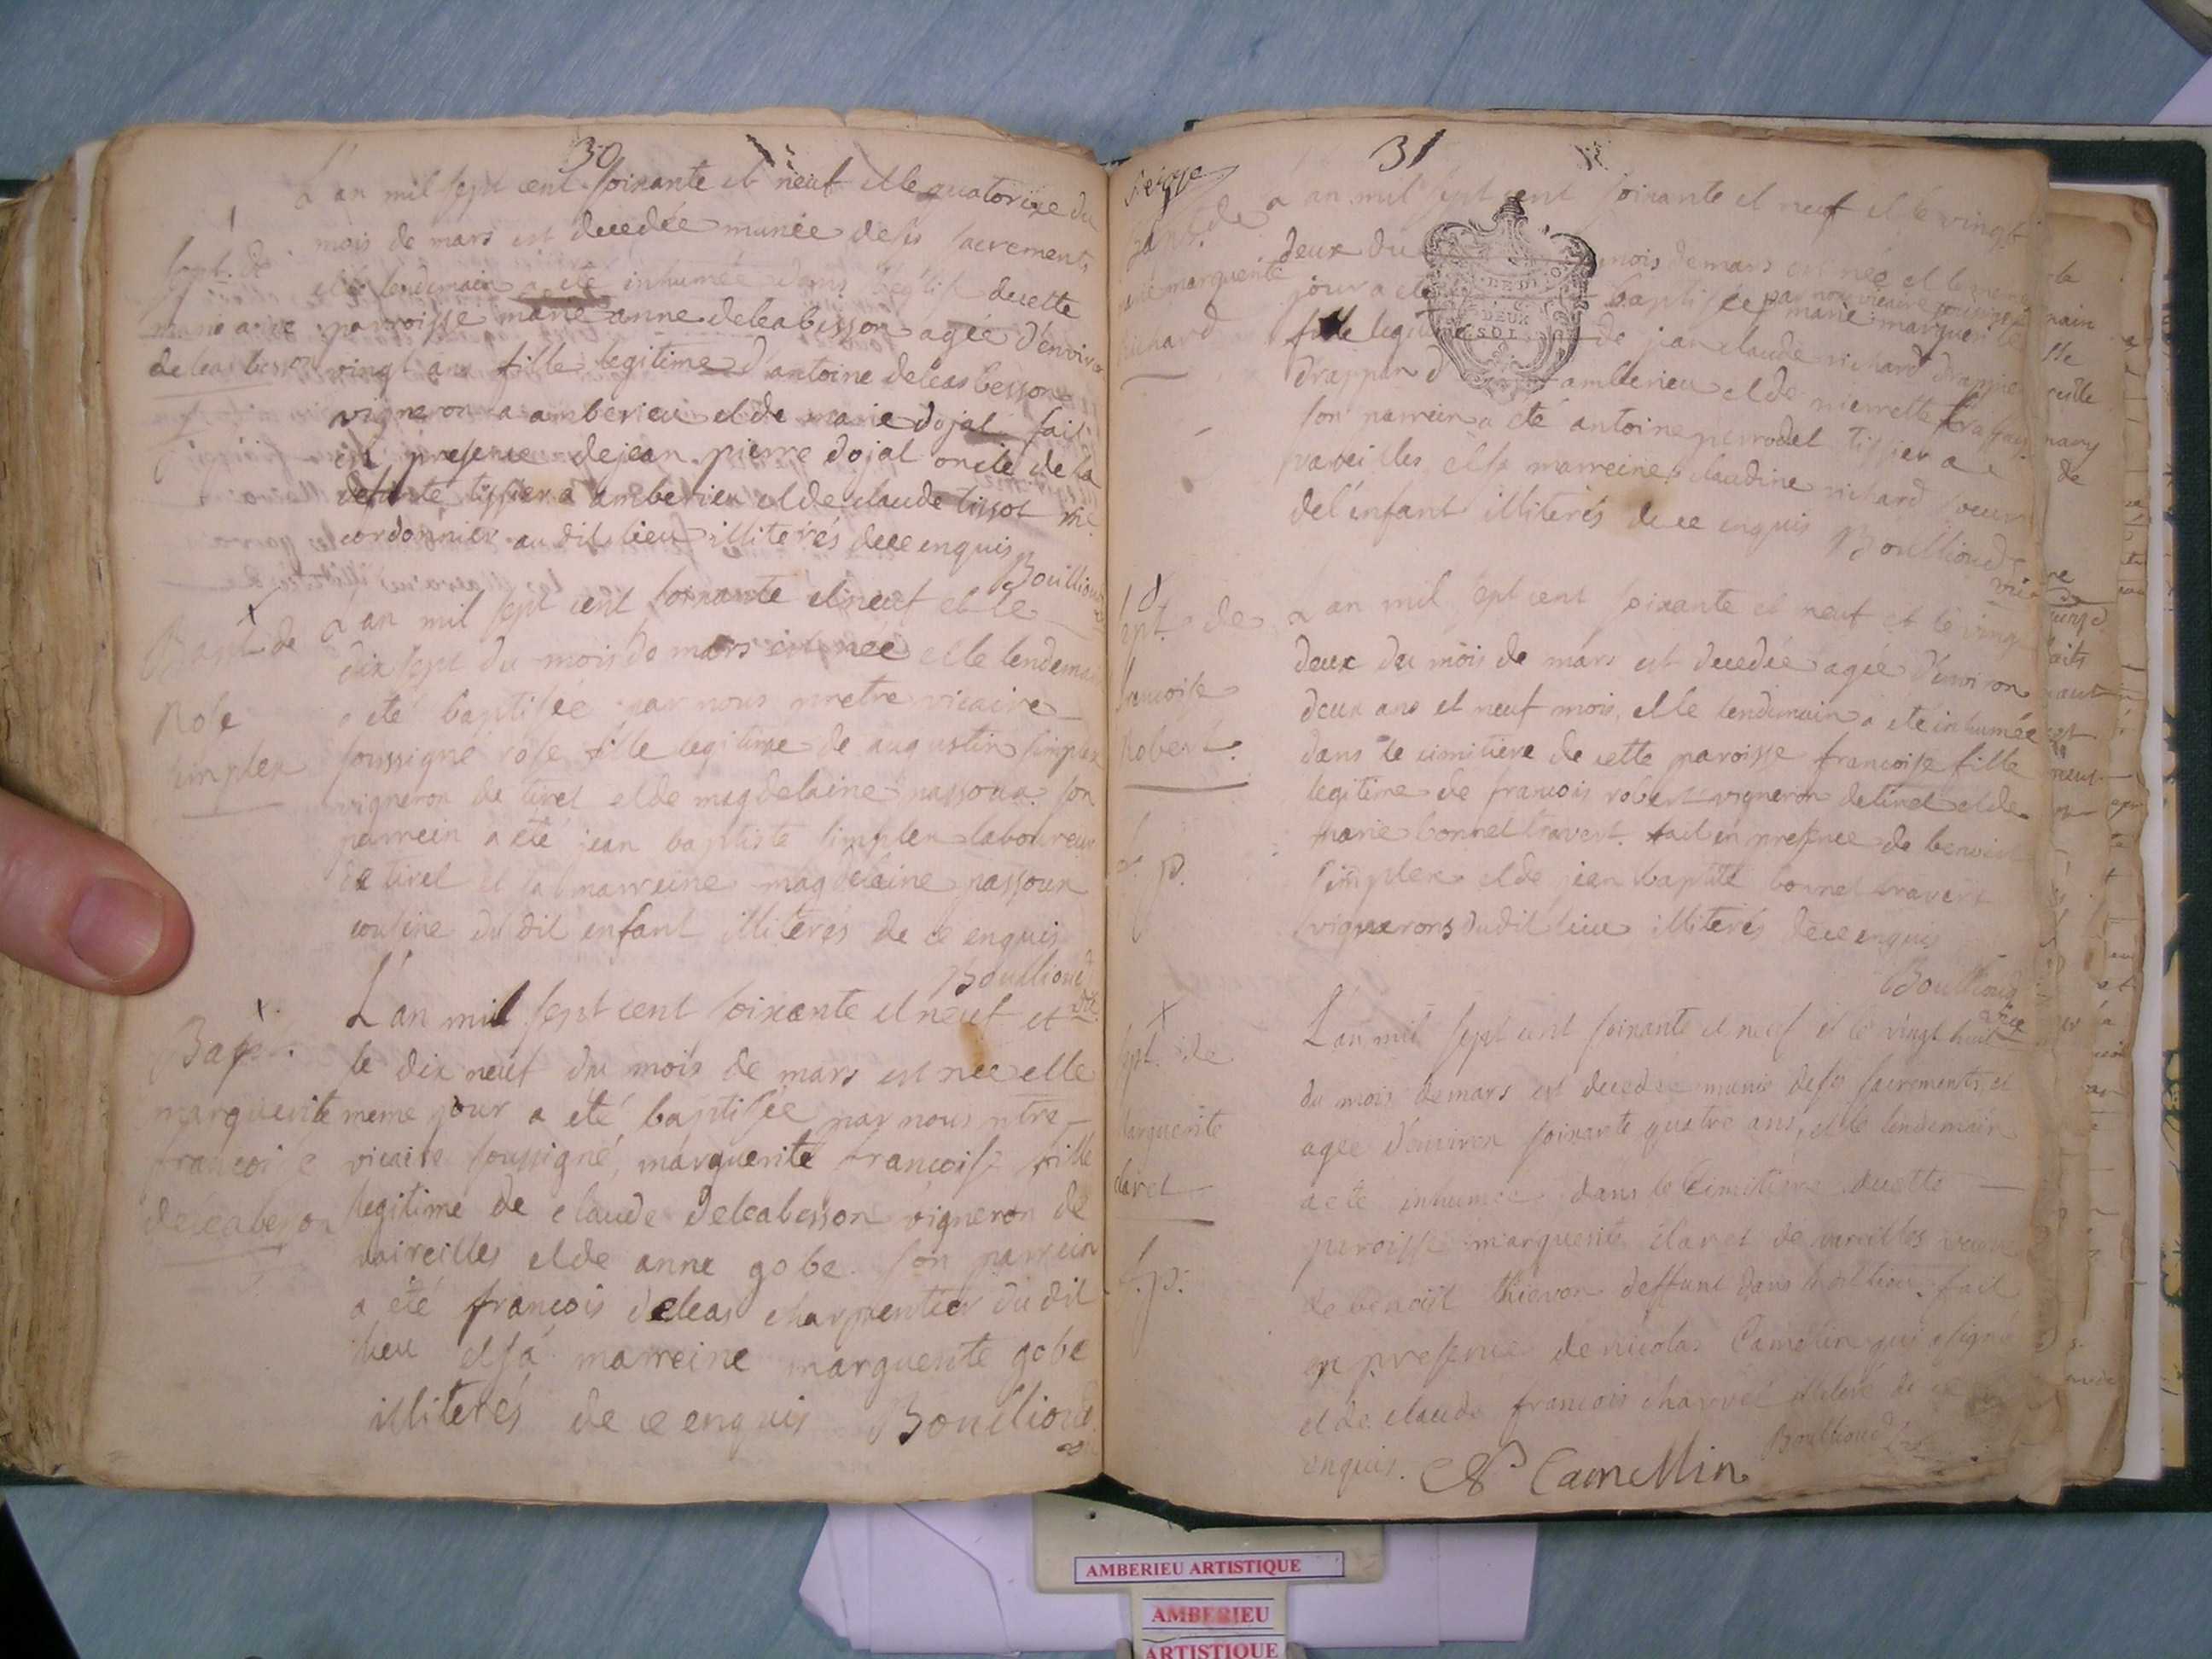 30
L'an mil sept cent soixante et neuf et le quatorze du
mois de mars est decedée munie de ses sacrements
et le lendemain a eté inhumée dans l'eglise de cette
parroisse marie anne deleabesson agée d'environ
vingt ans fille legitime d'antoine deleas besson
vigneron a amberieu et de marie dojat fait
en presence de jean pierre dojat oncle de la
defunte tissier a amberieu et de claude tissot
cordonnier au dit lieu illiterés de ce enquis
Bouillioud
Sept. de
marie anne
deleas besson
L'an mil sept cent soixante et neuf et le
dix sept du mois de mars est née et le lendemain
a eté baptisée par nous pretre vicaire
soussigné rose fille legitime de augustin simplex
vigneron de tiret et de magdelaine passoux son
parrein a eté jean baptiste simplex laboureur
de tiret et la marreine magdelaine passoux
cousine du dit enfant illiterés de ce enquis
Bouillioud
vic.
Bapt. de
Rose
simplex
L'an mil sept cent soixante et neuf et
le dix neuf du mois de mars est née et le
meme jour a été baptisée par nous ptre
vicaire soussigné, marguerite francoise fille
legitime de claude deleabesson vigneron de
vareilles et de anne gobe. son parrein
a été francois deleas charpentier du dit
lieu et sa marreine marguerite gobe
illiterés de ce enquis Bouillioud
Bapt.
marguerite
francoise
deleabesson
31
L'an mil sept cent soixante et neuf et le vingt
deux du mois de mars est née et le meme
jour a eté baptisée par nous vicaire soussigné
marie marguerite
fille legitime de jean claude richard drappier
drappan d'amberieu et de pierrette
son parrein a eté antoine perrodet tissier a
vareilles et sa marreine claudine richard soeur
de l'enfant illiterés de ce enquis Bouillioud
vic.
DEUX
SOLS
Bapt. de
marie marguerite
richard
L'an mil sept cent soixante et neuf et le vingt
deux du mois de mars est decedée agée d'environ
deux ans et neuf mois, et le lendemain a eté inhumée
dans le cimitiere de cette paroisse francoise fille
legitime de francois robert vigneron de tiret et de
marie bonnet travert. fait en presence de benoit
simplex et de jean baptiste bonnet travert
vignerons du dit lieu illiterés de ce enquis
Bouillioud
vic
Sept. de
francoise
Robert.
g. p.
L'an mil sept cent soixante et neuf et le vingt huit
du mois de mars est decedée munie de ses sacrements, et
agée d'environ soixante quatre ans, et le lendemain
a eté inhumée dans le Cimitiere de cette
paroisse marguerite claret de vareilles veuve
de benoit thievon deffunt dans le dit lieu. fait
en presence de nicolas Camelin qui a signé
et de claude francois charvet illiteré de ce
enquis. Bouillioud
N Camellin
Sept. de
marguerite
claret
g. p.
AMBERIEU ARTISTIQUE
AMBERIEU
ARTISTIQUE